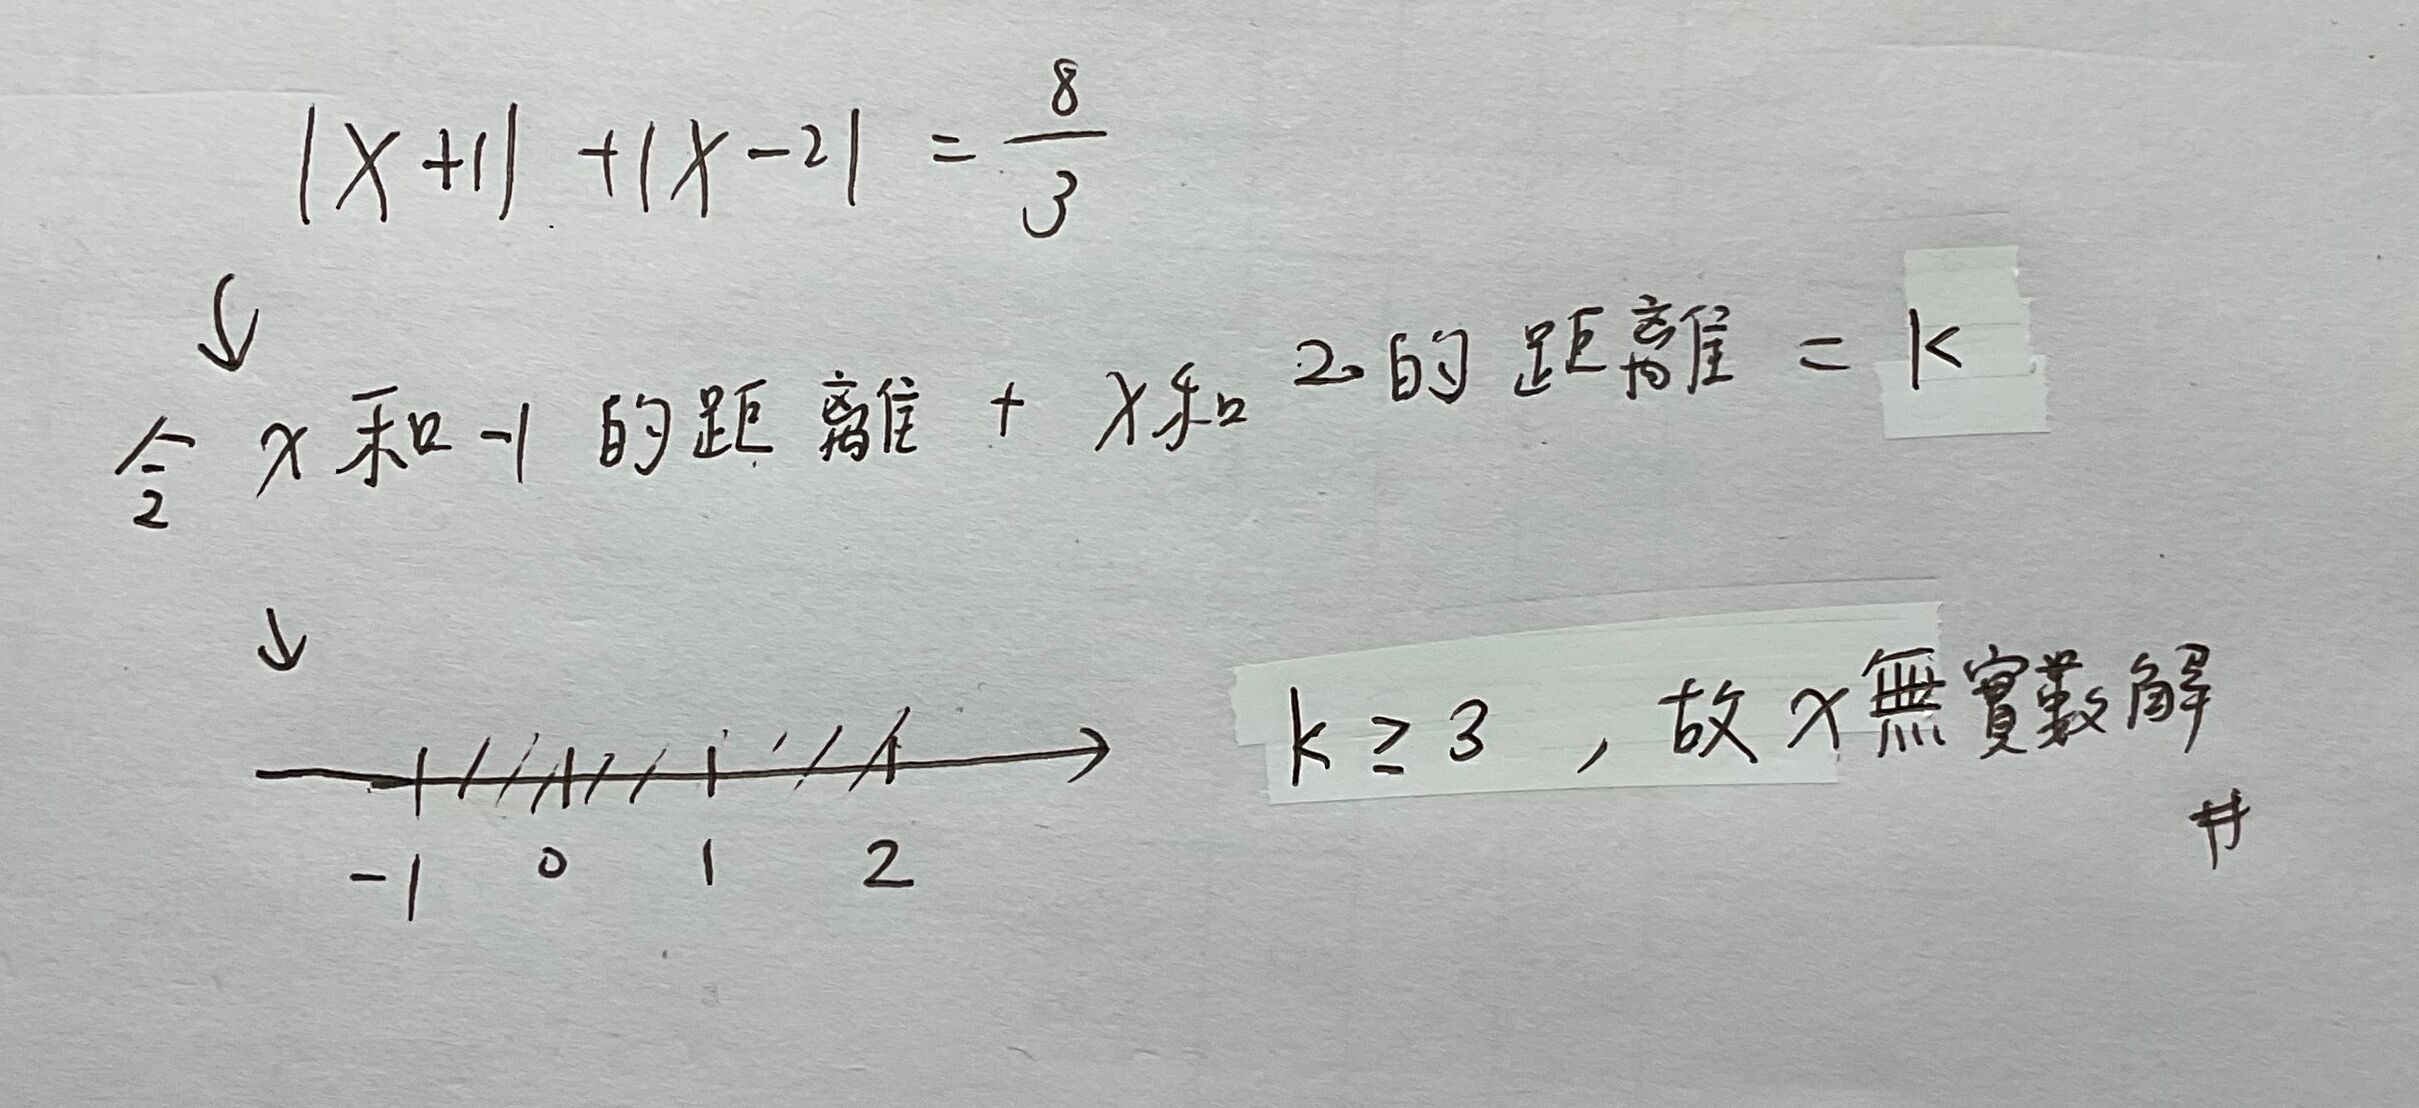 |x+1| + |x-2| = 8/3
↓
令 x和-1的距離 + x和2的距離 = k
↓
k ≥ 3 , 故x無實數解
#
-1 0 1 2